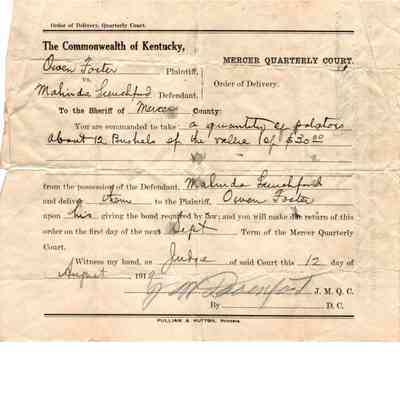 Order of Delivery, Quarterly Court.
The Commonwealth of Kentucky,
Owen Foster Plaintiff,
vs.
Malinda Defendant,
MERCER QUARTERLY COURT.
Order of Delivery.
To the Sheriff of Mercer County:
You are commanded to take: a quantity of potatoes
about 12 Bushels of the value of $30.00
from the possession of the Defendant, Malinda
and deliver them to the Plaintiff, Owen Foster
upon his giving the bond required by law; and you will make due return of this
order on the first day of the next Sept Term of the Mercer Quarterly
Court.
Witness my hand, as Judge of said Court this 12 day of
August 191
J. M. Q. C.
By D. C.
PULLIAM & HUTTON, Printers